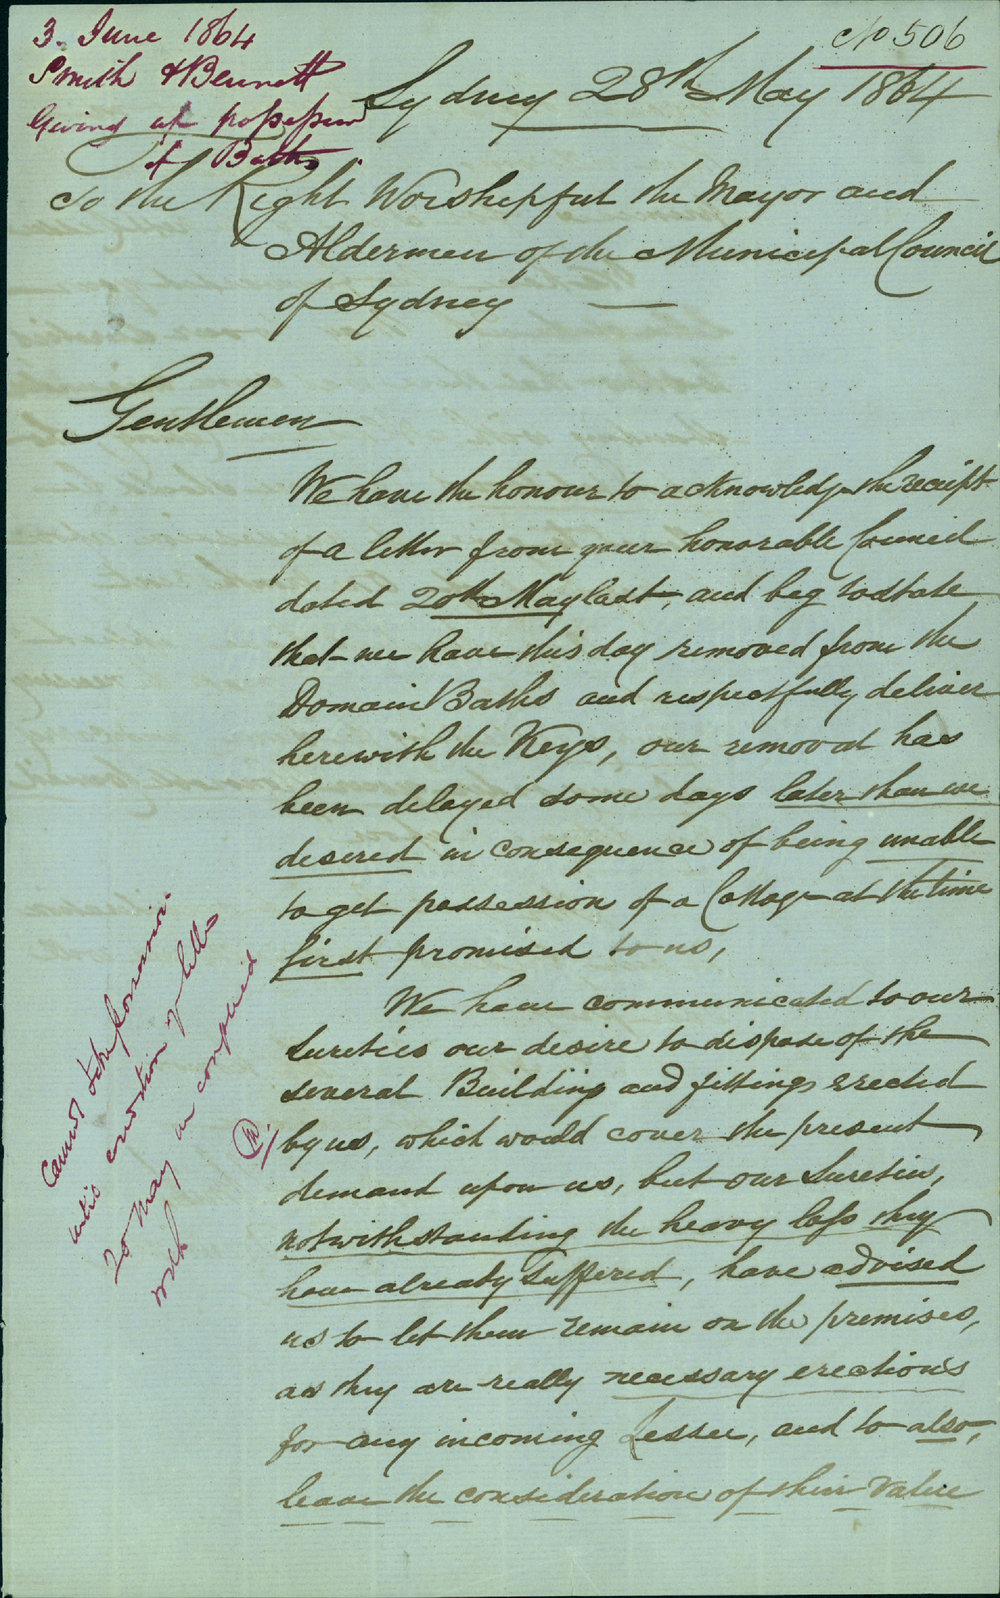 3. June 1864
Smith & Bennett
Giving up possession
of Baths.
No 506
Sydney 28th May 1864
To the Right Worshipful the Mayor and
Aldermen of the Municipal Council
of Sydney
Gentlemen
We have the honour to acknowledge the receipt
of a letter from your honorable Council
dated 20th May last, and beg to state
that we have this day removed from the
Domain Baths and respectfully deliver
herewith the Keys, our removal has
been delayed some days later than we
desired in consequence of being unable
to get possession of a Cottage at the time
first promised to us,
We have communicated to our
Sureties our desire to dispose of the
several Buildings and fittings erected
by us, which would cover the present
demand upon us, but our Sureties,
notwithstanding the heavy loss they
have already suffered, have advised
us to let them remain on the premises,
as they are really necessary erections
for any incoming Lessee, and to also,
leave the consideration of their value
Cannot take possession
until conditions of letter
20 May are complied
with